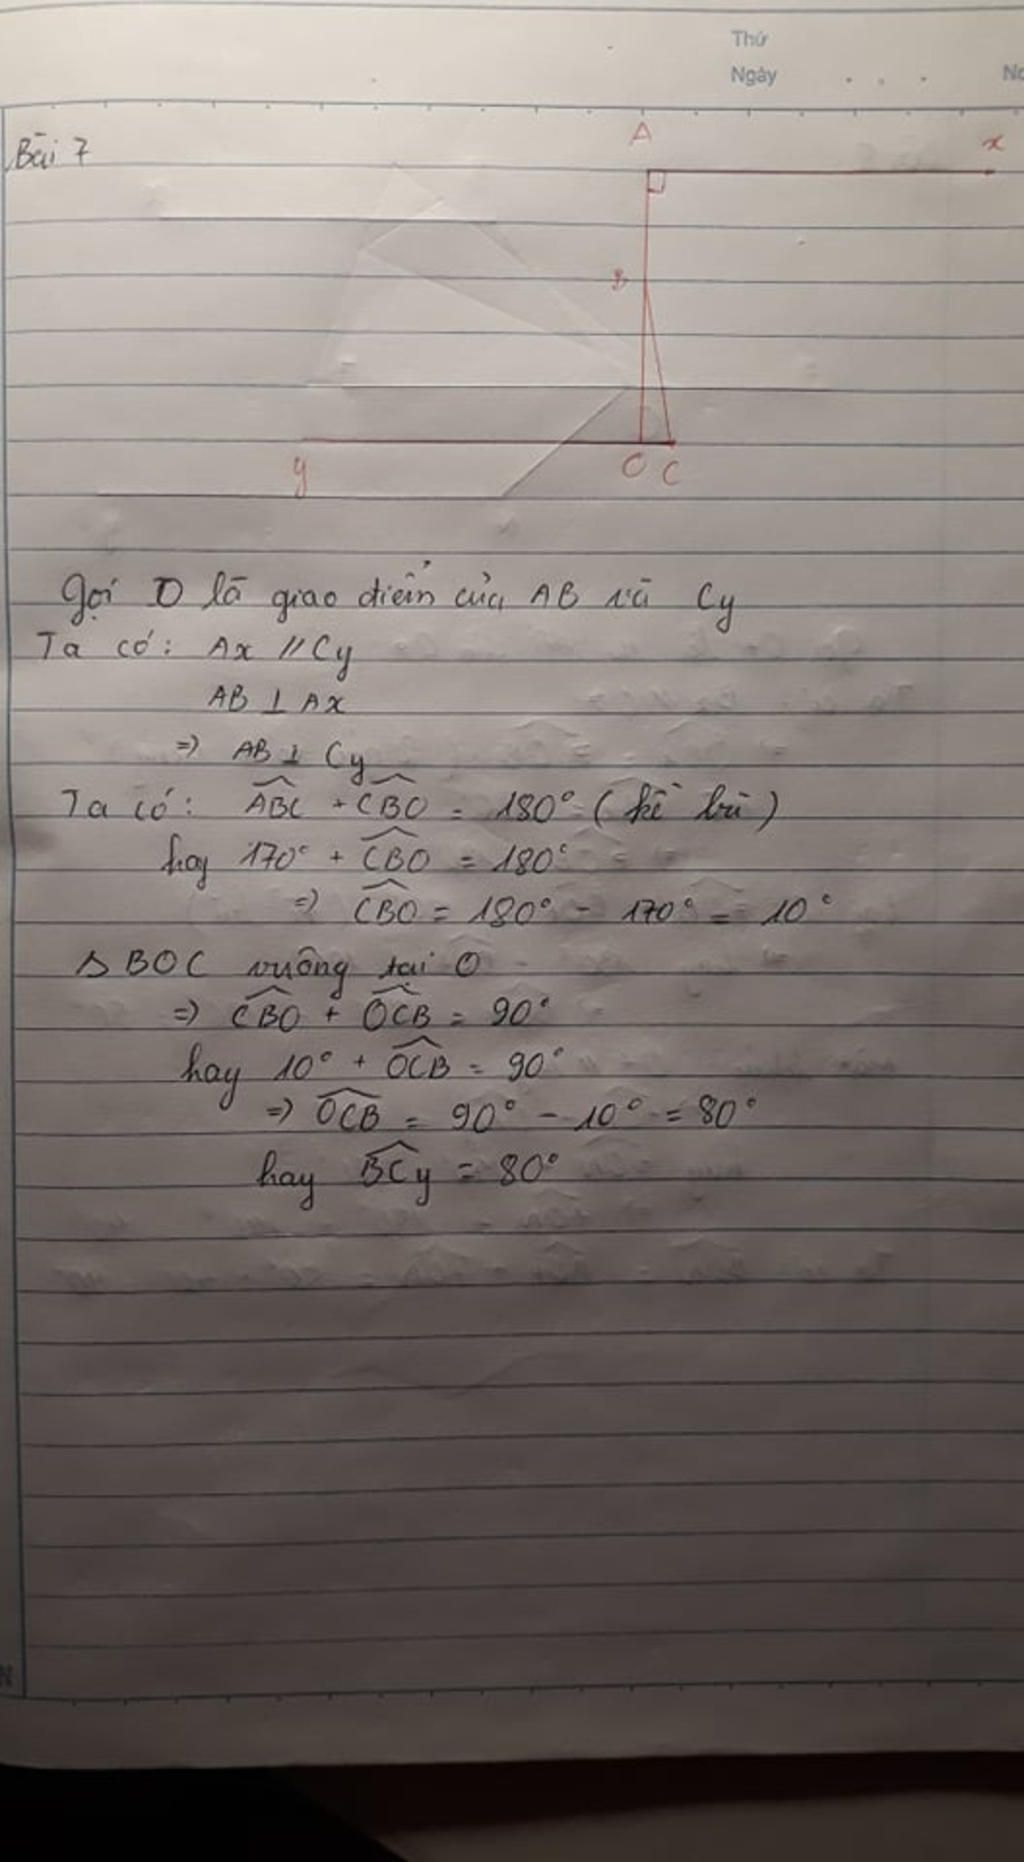 Thứ
Ngày
No
Bài 7
A
x
B
y
O C
Gọi O là giao điểm của AB và Cy
Ta có: Ax // Cy
AB ⊥ Ax
=> AB ⊥ Cy
Ta có: ABC + CBO = 180° (kề bù)
hay 170° + CBO = 180°
=> CBO = 180° - 170° = 10°
Δ BOC vuông tại O
=> CBO + OCB = 90°
hay 10° + OCB = 90°
=> OCB = 90° - 10° = 80°
hay BCy = 80°
N